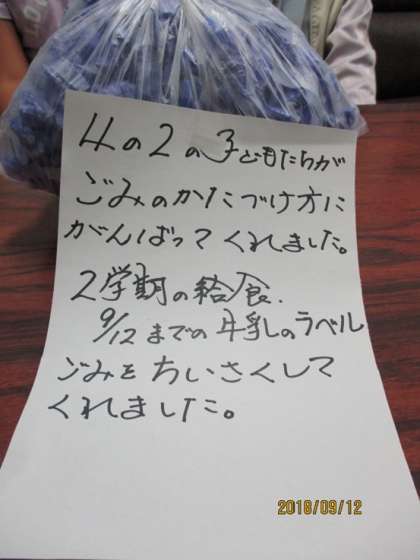 4の2の子どもたちが
ごみのかたづけ方に
がんばってくれました。
2学期の給食.
9/12までの牛乳のラベル
ごみをちいさくして
くれました。
2018/09/12